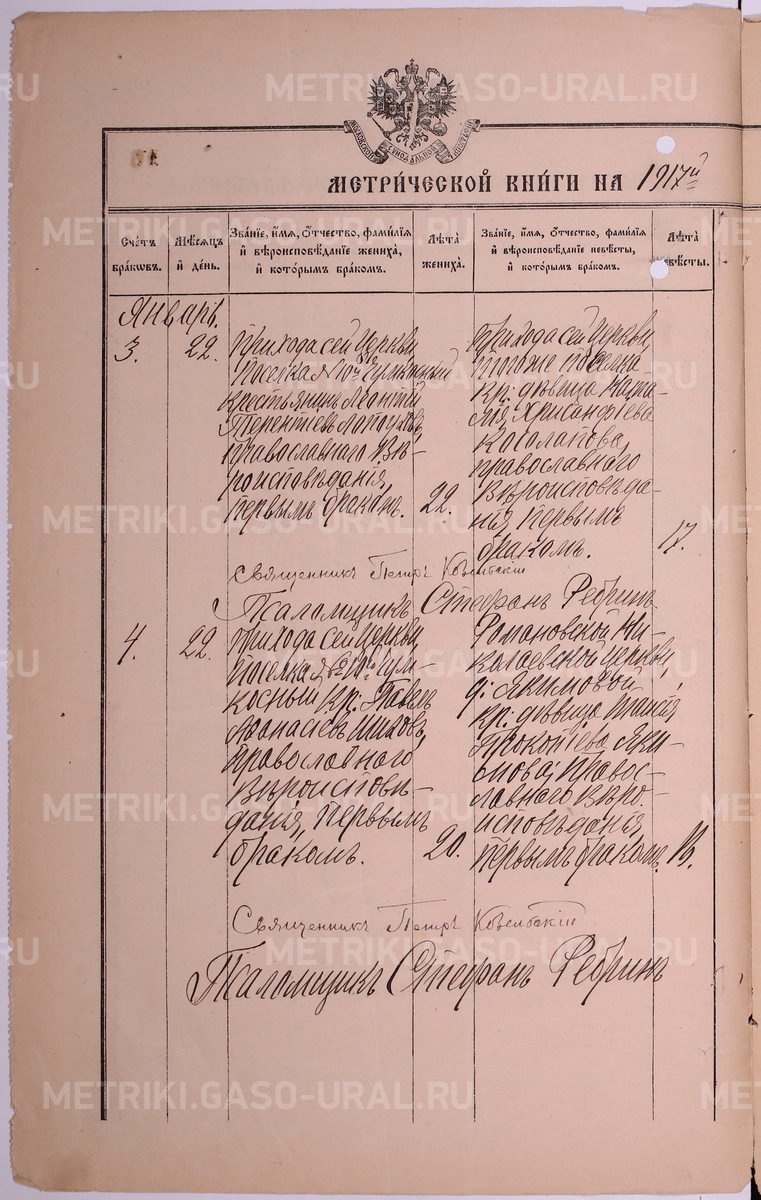 METRIKI.GASO-URAL.RU
МЕТРИ́ЧЕСКОЙ КНИ́ГИ НА 1917й
Сче́тъ бра́кѡвъ.
Мѣ́сѧцъ и҆ де́нь.
Зва́нїе, и҆́мѧ, ѻ҆́тчество, фами́лїѧ и҆ вѣроисповѣ́данїе жениха̀, и҆ кото́рымъ бра́комъ.
Лѣ́та жениха̀.
Зва́нїе, и҆́мѧ, ѻ҆́тчество, фами́лїѧ и҆ вѣроисповѣ́данїе невѣ́сты, и҆ кото́рымъ бра́комъ.
Лѣ́та невѣ́сты.
Январь.
3.
22.
Прихода сей Церкви,
Поселка №10й
Крестьянинъ Леонтій
Терентіевъ
Православнаго Вѣ-
роисповѣданія,
первымъ бракомъ.
22.
Прихода сей Церкви,
Того же поселка
кр: дѣвица Ната-
лія Хрисанфіева
Косолапова,
православнаго
Вѣроисповѣда-
нія первымъ
бракомъ.
17.
Священникъ Петръ
Псаломщикъ Стефанъ Ребринъ
4.
22.
Прихода сей Церкви,
Поселка №10й
кр: Павелъ
Аѳанасіевъ Шиховъ,
Православнаго
Вѣроисповѣ-
данія, первымъ
бракомъ.
20.
Романовской Ни-
колаевской Церкви,
д: Якимовой
кр: дѣвица Таисія
Прокопіева Яки-
мова, Правос-
лавнаго Вѣро-
исповѣданія,
первымъ бракомъ.
Священникъ Петръ
Псаломщикъ Стефанъ Ребринъ